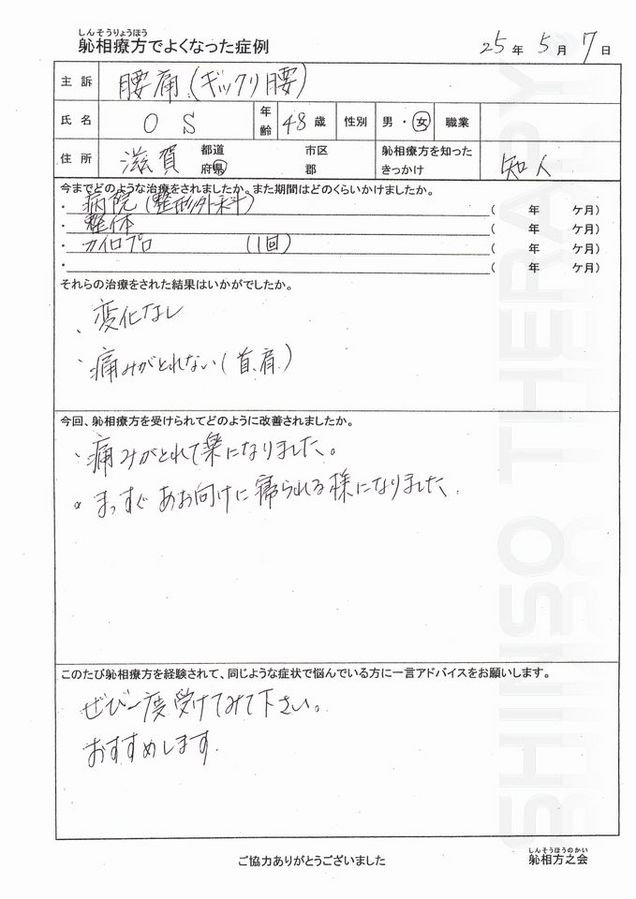 しんそうりょうほう
躰相療方でよくなった症例
25年5月7日
主訴 腰痛(ギックリ腰)
氏名 OS 年齢 48歳 性別 男・女 職業
住所 滋賀 都道府県 市区郡 躰相療方を知ったきっかけ 知人
今までどのような治療をされましたか。また期間はどのくらいかけましたか。
・病院(整形外科) ( 年 ケ月)
・整体 ( 年 ケ月)
・カイロプロ (1回) ( 年 ケ月)
・ ( 年 ケ月)
それらの治療をされた結果はいかがでしたか。
・変化なし
・痛みがとれない(首、肩)
今回、躰相療方を受けられてどのように改善されましたか。
・痛みがとれて楽になりました。
・まっすぐあお向けに寝られる様になりました。
このたび躰相療方を経験されて、同じような症状で悩んでいる方に一言アドバイスをお願いします。
ぜひ一度受けてみて下さい。
おすすめします。
ご協力ありがとうございました
しんそうほうのかい
躰相方之会
SHINSO THERAPY